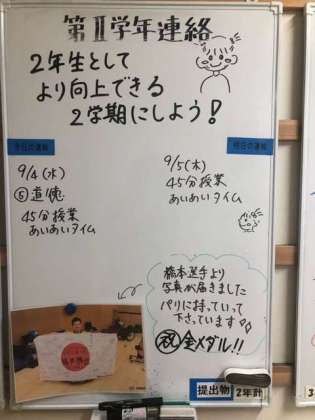 第Ⅱ学年連絡
2年生として
より向上できる
2学期にしよう!
今日の連絡
明日の連絡
9/4(水)
⑤道徳
45分授業
あいあいタイム
9/5(木)
45分授業
あいあいタイム
橋本選手より
写真が届きました
パリに持っていって
下さっています
㊗金メダル!!
提出物
2年計